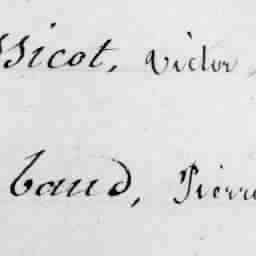 ssicot, Victor
baud, Pierre